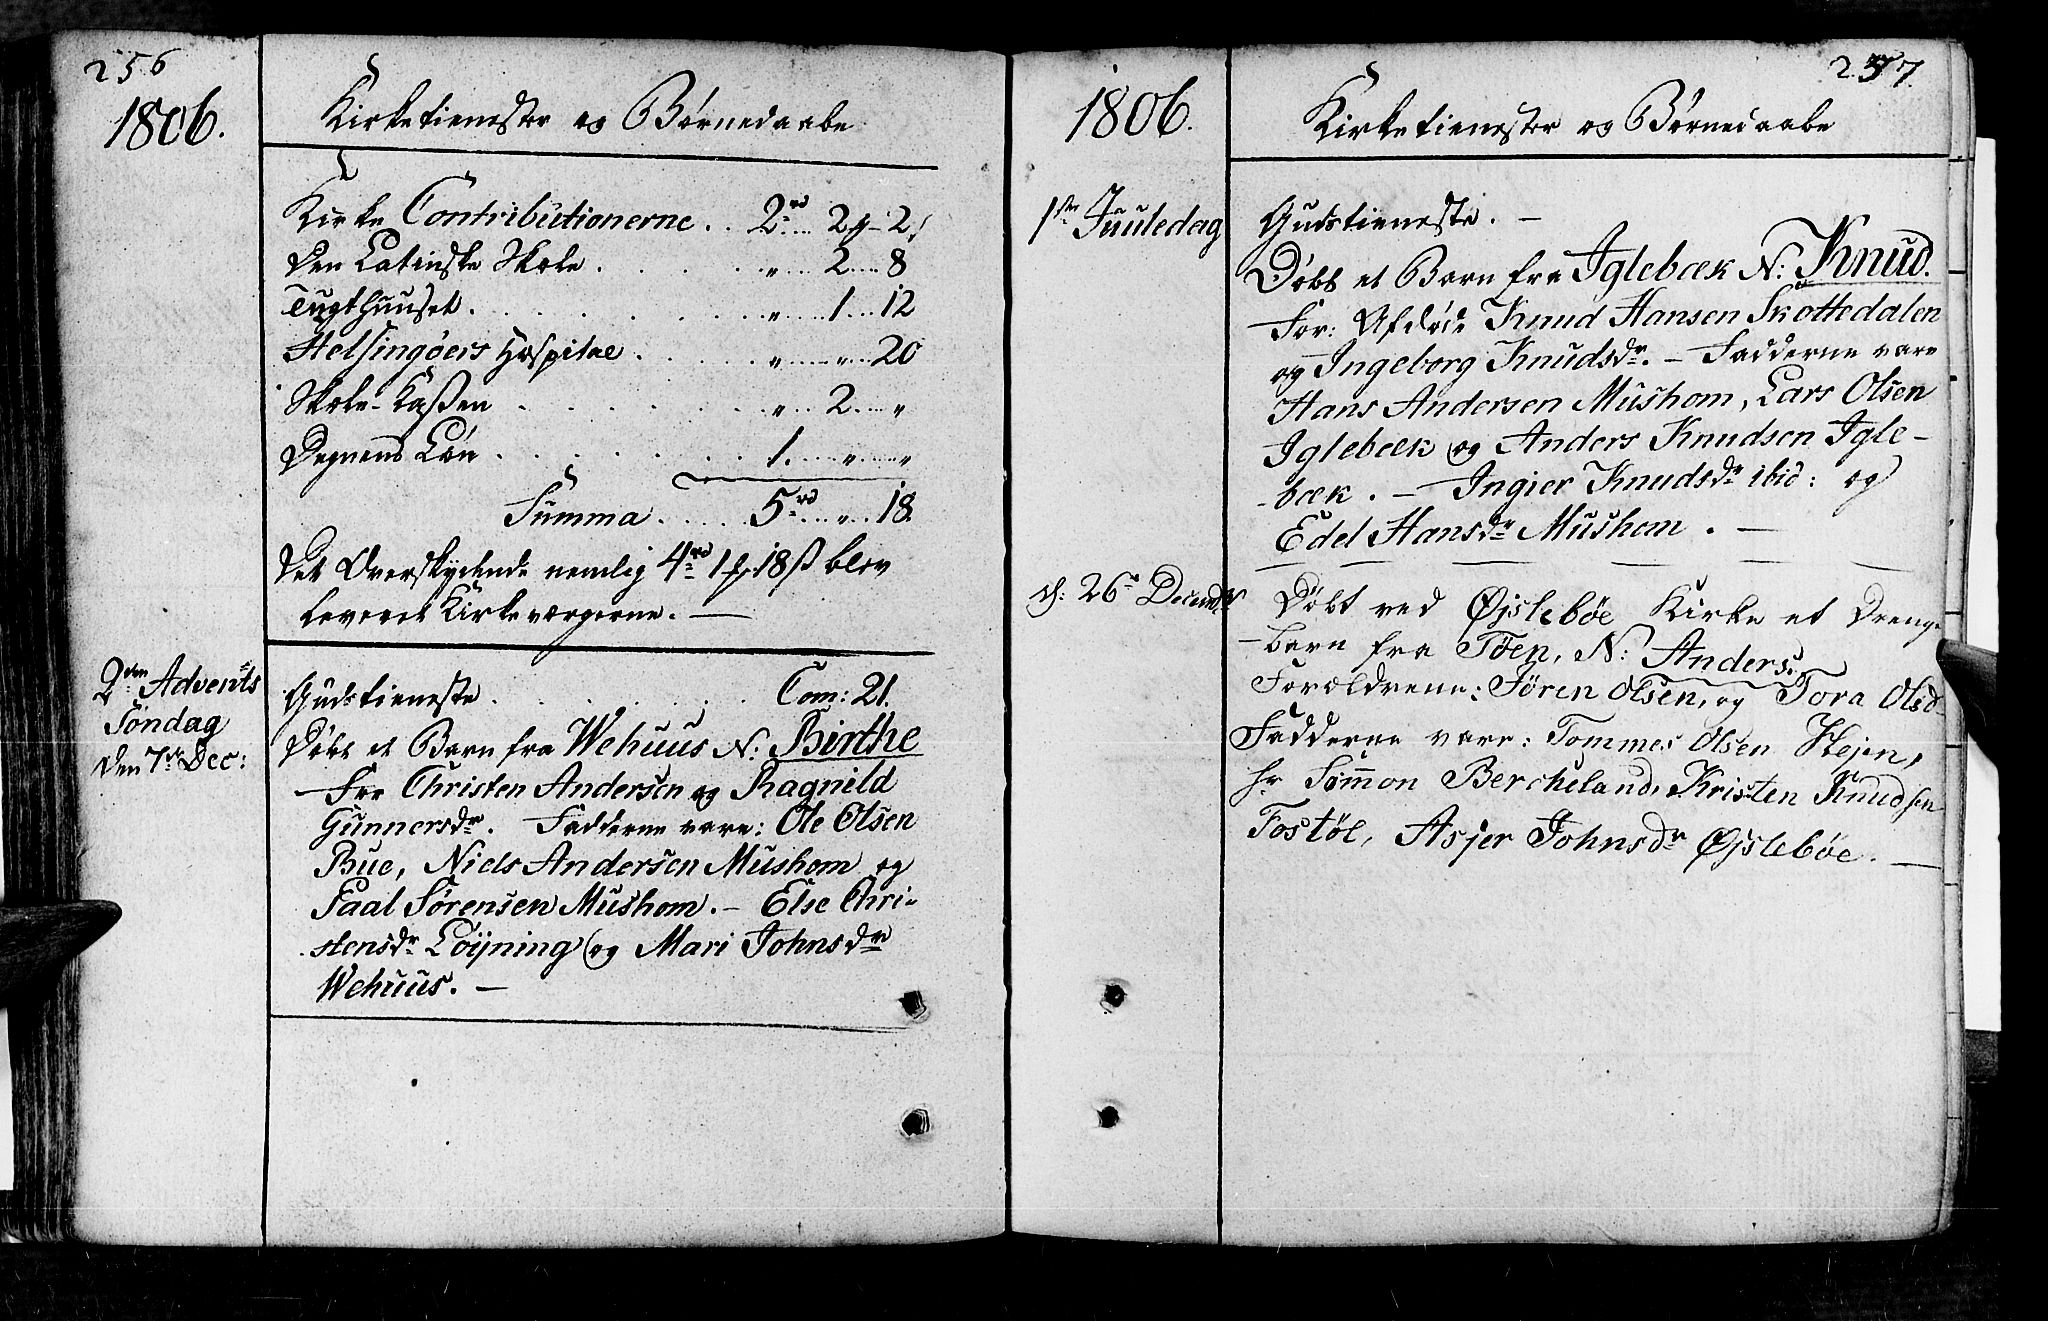 256
1806.
Kirketienester og Børnedaabe
Kirke Contributionerne . . 2 rd .... 2 - 2
Den Latinske Skole . . . . . " .... 2 .... 8
Tugthuuset . . . . . . " .... 1 .... 12
Helsingøers Hospital . . . . " .... " ... 20
Skole-Kaßen . . . . . . " ... 2 .... "
Degnens Løn . . . . . . 1. .... " .... "
Summa . . . . . 5 rd .... " .. 18.
Det Overskydende nemlig 4 rd 1 18 ß blev
leveret Kirkeværgerne. —
2den Advents
Søndag
den 7de Dec:
Gudstieneste . . . . . . . Com: 21.
Døbt et Barn fra Wehuus N: Birthe
For Christen Andersen og Ragnild
Gunnersdr. Fadderne vare: Ole Olsen
Bue, Niels Andersen Mushom og
Paal Sørensen Mushom. — Else Chri-
stensdr Løijning og Mari Johnsdr
Wehuus. —
257.
1806.
Kirketienester og Børnedaabe
1ste Juuledag
Gudstieneste. —
Døbt et Barn fra Iglebæk N: Knud.
For: Afdøde Knud Hansen Skottedalen
og Ingeborg Knudsdr. — Fadderne vare
Hans Andersen Mushom, Lars Olsen
Iglebæk og Anders Knudsen Igle-
-bæk. — Ingier Knudsdr ibid: og
Edel Hansdr Mushom. —
d: 26de Decembr
Døbt ved Øjslebøe Kirke et Drenge
-barn fra Tøen, N: Anders.
Forældrene: Sören Olsen, og Tora Olsd-
Fadderne vare: Tommes Olsen Hejen,
hr Sømmon Bercheland, Kristen Knudsen
Fostöl, Asjer Johnsdr Øjslebøe. —